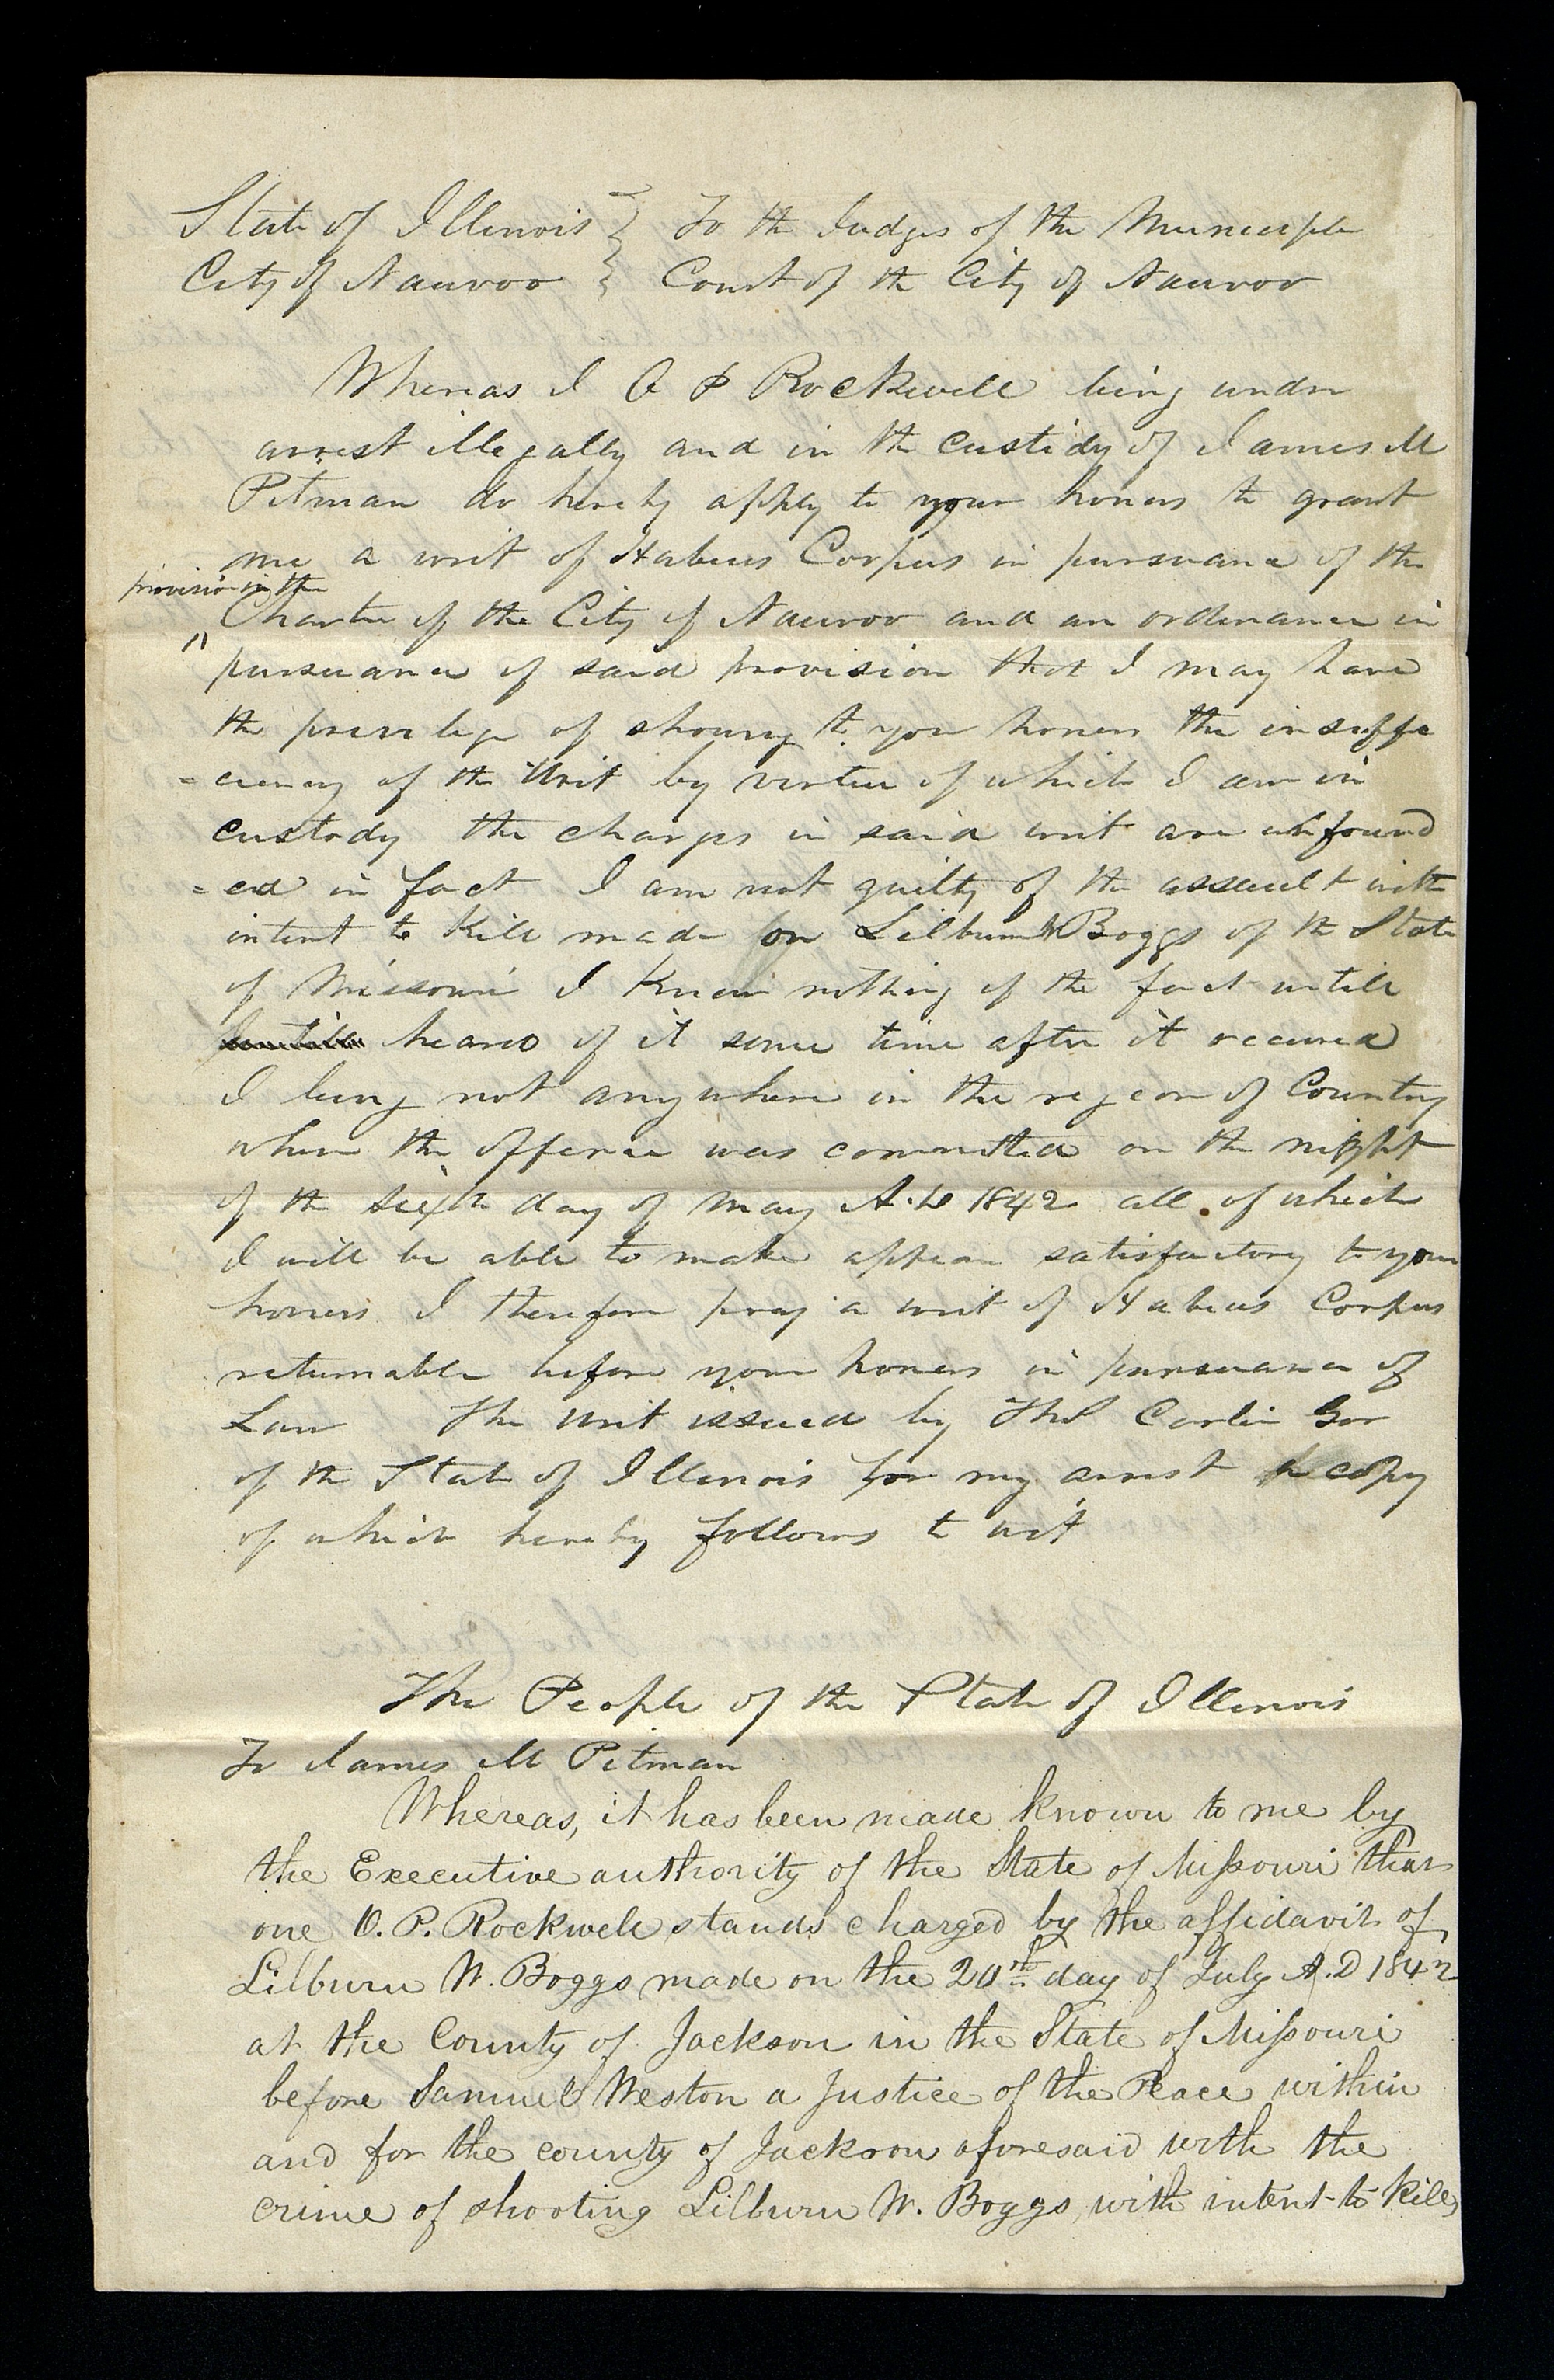 State of Illinois } To the Judges of the Municiple
City of Nauvoo } Court of the City of Nauvoo
Whereas I O P Rockwell being under
arrest illegally and in the custidy of James M
Pitman do hereby apply to your honers to grant
me a writ of Habeus Corpus in pursuance of the
provision in the
Charter of the City of Nauvoo and an ordinance in
pursuance of said provision that I may have
the privilege of showing to your honers the insuffi
=ciency of the Writ by virtue of which I am in
custody the charges in said writ are unfound
=ed in fact I am not guilty of the assault with
intent to kill made on Lilburn W Boggs of the State
of Missouri I knew nothing of the fact untill
heard of it some time after it occured
I being not any where in the region of Country
where the offence was committed on the night
of the sixth day of May A.D 1842 all of which
I will be able to make appear satisfactory to your
honers I therefore pray a writ of Habeus Corpus
returnable before your honers in pursuance of
Law The writ issued by Thos Carlin Gov
of the State of Illinois for my arrest copy
of which hereby follows to wit
The People of the State of Illinois
To James M Pitman
Whereas, it has been made known to me by
the Executive authority of the State of Missouri that
one O. P. Rockwell stands charged by the affidavit of
Lilburn W. Boggs made on the 20th day of July A.D 1842
at the County of Jackson in the State of Missouri
before Samuel Weston a Justice of the Peace within
and for the county of Jackson aforesaid with the
crime of shooting Lilburn W. Boggs, with intent to kill,